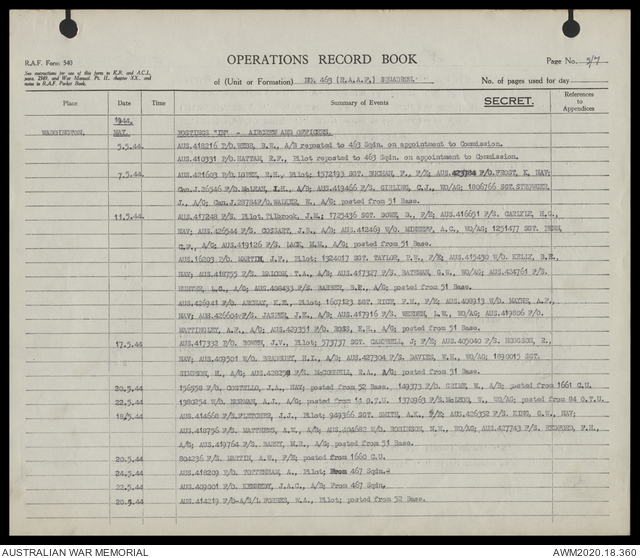 R.A.F. Form 540
See instructions for use of this form in K.R. and A.C.I.,
para. 2349, and War Manual, Pt. II., chapter XX., and
notes in R.A.F. Pocket Book.
OPERATIONS RECORD BOOK
Page No. 5/7
of (Unit or Formation) NO. 463 (R.A.A.F.) SQUADRON.
No. of pages used for day
Place Date Time Summary of Events SECRET. References to Appendices
1944.
WADDINGTON. MAY. POSTINGS "IN" - AIRCREW AND OFFICERS.
5.5.44 AUS.418216 P/O. A/B reposted to 463 Sqdn. on appointment to Commission.
AUS.410331 P/O. HATTAM, R.F., Pilot reposted to 463 Sqdn. on appointment to Commission.
7.5.44 AUS.421603 P/O. R.H., Pilot; 1572193 SGT. F., F/E; AUS.423784 F/O. FROST, K, NAV;
Can.J.26546 F/O. McLEAN, I.H., A/B; AUS.419466 F/S. GIRLING, C.J., WO/AG; 1806766 SGT.
J., A/G; Can.J.28784 F/O. WALKER, A/G; posted from 51 Base.
11.5.44 AUS.417248 F/S. Pilot. Tilbrook, J.M.; 1725436 SGT. F/E; AUS.416651 F/S. CARLILE, H.G.,
NAV; AUS.426544 F/S. COSSART, J.B., A/B; AUS.412469 W/O. A.C., WO/AG; 1251477 SGT.
C.F., A/G; AUS.419126 F/S. A/G; posted from 51 Base.
AUS.16203 P/O. MARTIN, J.F., Pilot; 1324017 SGT. TAYLOR, F/E; AUS.415430 W/O. KELLY,
NAV; AUS.418755 F/S. MALCOM, T.A., A/B; AUS.417327 F/S. BATEMAN, G.H., WO/AG; AUS.434761 F/S.
HUNTER, L.G., A/G; AUS.408433 F/S. BARBER, A/G; posted from 51 Base.
AUS.426941 F/O. Pilot; 1607123 SGT. RICH, F.H., F/E; AUS.408913 W/O. MAYNE, A.F.,
NAV; AUS.426604 F/S. JASPER, J.K., A/B; AUS.417916 F/S. L.W., WO/AG; AUS.419806 F/O.
MATTINGLEY, A.F., A/G; AUS.429351 F/O. ROSS, A/G; posted from 51 Base.
17.5.44 AUS.417332 P/O. BOWEN, J.V., Pilot; 573737 SGT. CAMPBELL, J; F/E; AUS.405040 F/S. HODGSON, R.,
NAV; AUS.409501 W/O. BRADBURY, H.I., A/B; AUS.427304 F/S. DAVIES, WO/AG; 1890015 SGT.
SIMPSON, A/G; AUS. F/S. McGONNELL, R.A., A/G; posted from 51 Base.
20.5.44 156558 F/O. COSTELLO, J.A., NAV; posted from 52 Base. 149373 F/O. A/B; posted from 1661 C.U.
22.5.44 1380254 W/O. A.J., A/G; posted from 14 O.T.U. 1370969 F/S. McLEOD, WO/AG; posted from 84 O.T.U.
18/5.44 AUS.414668 F/S. FLETCHER, J.J., Pilot; 949366 SGT. SMITH, A.K., F/E; AUS.426352 F/S. KING, G.W., NAV;
AUS.418756 F/S. MATTHEWS, A.K., A/B; AUS.404682 W/O. ROBINSON, WO/AG; AUS.427743 F/S. BEDFORD, F.H.,
A/B; AUS.419764 F/S. M.R., A/G; posted from 51 Base.
20.5.44 804236 F/S. MARTIN, A.W., F/E; posted from 1660 C.U.
24.5.44 AUS.418209 P/O. TOTTENHAM, A., Pilot; From 467 Sqdn.
22.5.44 AUS.409001 F/O. KENNEDY, J.A.C., A/B; From 467 Sqdn.
20.5.44 AUS.414219 F/O-A/S/L FORBES, W.A., Pilot; posted from 52 Base.
AUSTRALIAN WAR MEMORIAL
AWM2020.18.360